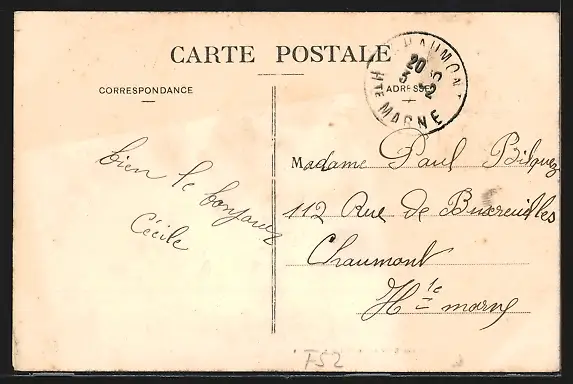 CARTE POSTALE
CORRESPONDANCE
ADRESSE
CHAUMONT
20
5 - 2
HTE MARNE
bien le bonjour
Cécile
Madame Paul
112 Rue de Buxereuilles
Chaumont
Hte marne
F52